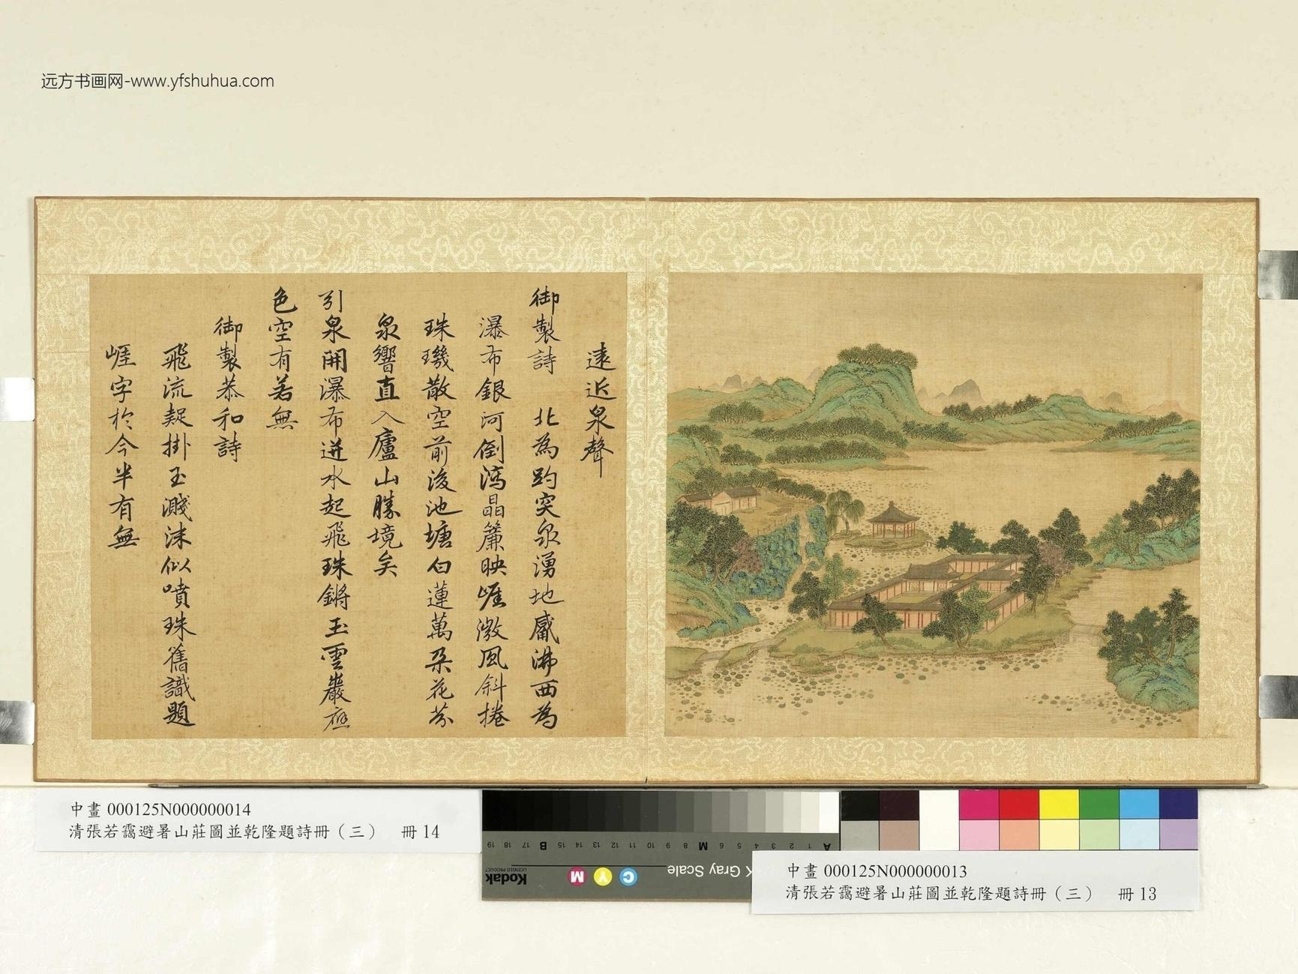 远方书画网-www.yfshuhua.com
遠近泉聲
御製詩　北為趵突泉湧地觱沸西為
瀑布銀河倒瀉晶簾映崖微風斜捲
珠璣散空前後池塘白蓮萬朵花芬
泉響直入廬山勝境矣
引泉開瀑布迸水起飛珠鏘玉雲巖應
色空有若無
御製恭和詩
飛流疑掛玉濺沫似噴珠舊識題
崖字於今半有無
中畫 000125N000000014
清張若靄避暑山莊圖並乾隆題詩冊（三） 冊 14
中畫 000125N000000013
清張若靄避暑山莊圖並乾隆題詩冊（三） 冊 13
Kodak
LICENSED PRODUCT
C Y M
K Gray Scale
A 1 2 3 4 5 6 M 8 9 10 11 12 13 14 15 B 17 18 19